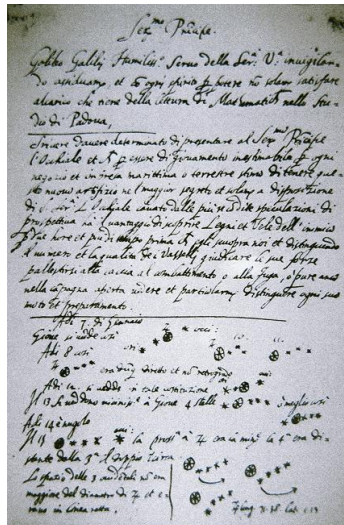 Ser.mo Principe.
Galileo Galilei Humiliss.o Servo della Ser.a V.a invigilan-
do assiduam.te et con ogni spirito p potere no solam satisfare
al carico che tiene della lettura di Matematich nello Stu-
dio di Padova,
Scrivere d'avere determinato di presentare al Ser.mo Principe
l'Occhiale et p essere di giovamento inestimabile p ogni
negozio et impresa marittima o terrestre stimo di tenere que-
sto nuovo artifizio nel maggior segreto et solam a disposizione
di S. Ser.a L'Occhiale cavato dalle più recondite speculazioni di
prospettiva ha il vantaggio di scoprire Legni et Vele dell'inimico
p due hore et più di tempo prima egli scuopra noi et distinguendo
il numero et la qualità de i Vasselli giudicare le sue forze
pallestirsi alla caccia al combattimento o alla fuga, o pure anco
nella capagna aperta vedere et particolarm distinguere ogni suo
moto et preparamento.
Adi 7. di Gennaio
Giove si vede così
Adi 8 così
era diretto et no retrogrado
Adi 12 si vedde in tale costituzione
Il 13 si veddono vicinissi a Giove 4 stelle
Adi 14 è nugolo
Il 15
la pross.a a era la min.a la 4.a era di-
stante dalla 3.a il doppio
Lo spazio delle 3 occidentali no era
maggiore del diametro di et e-
rano in linea retta.